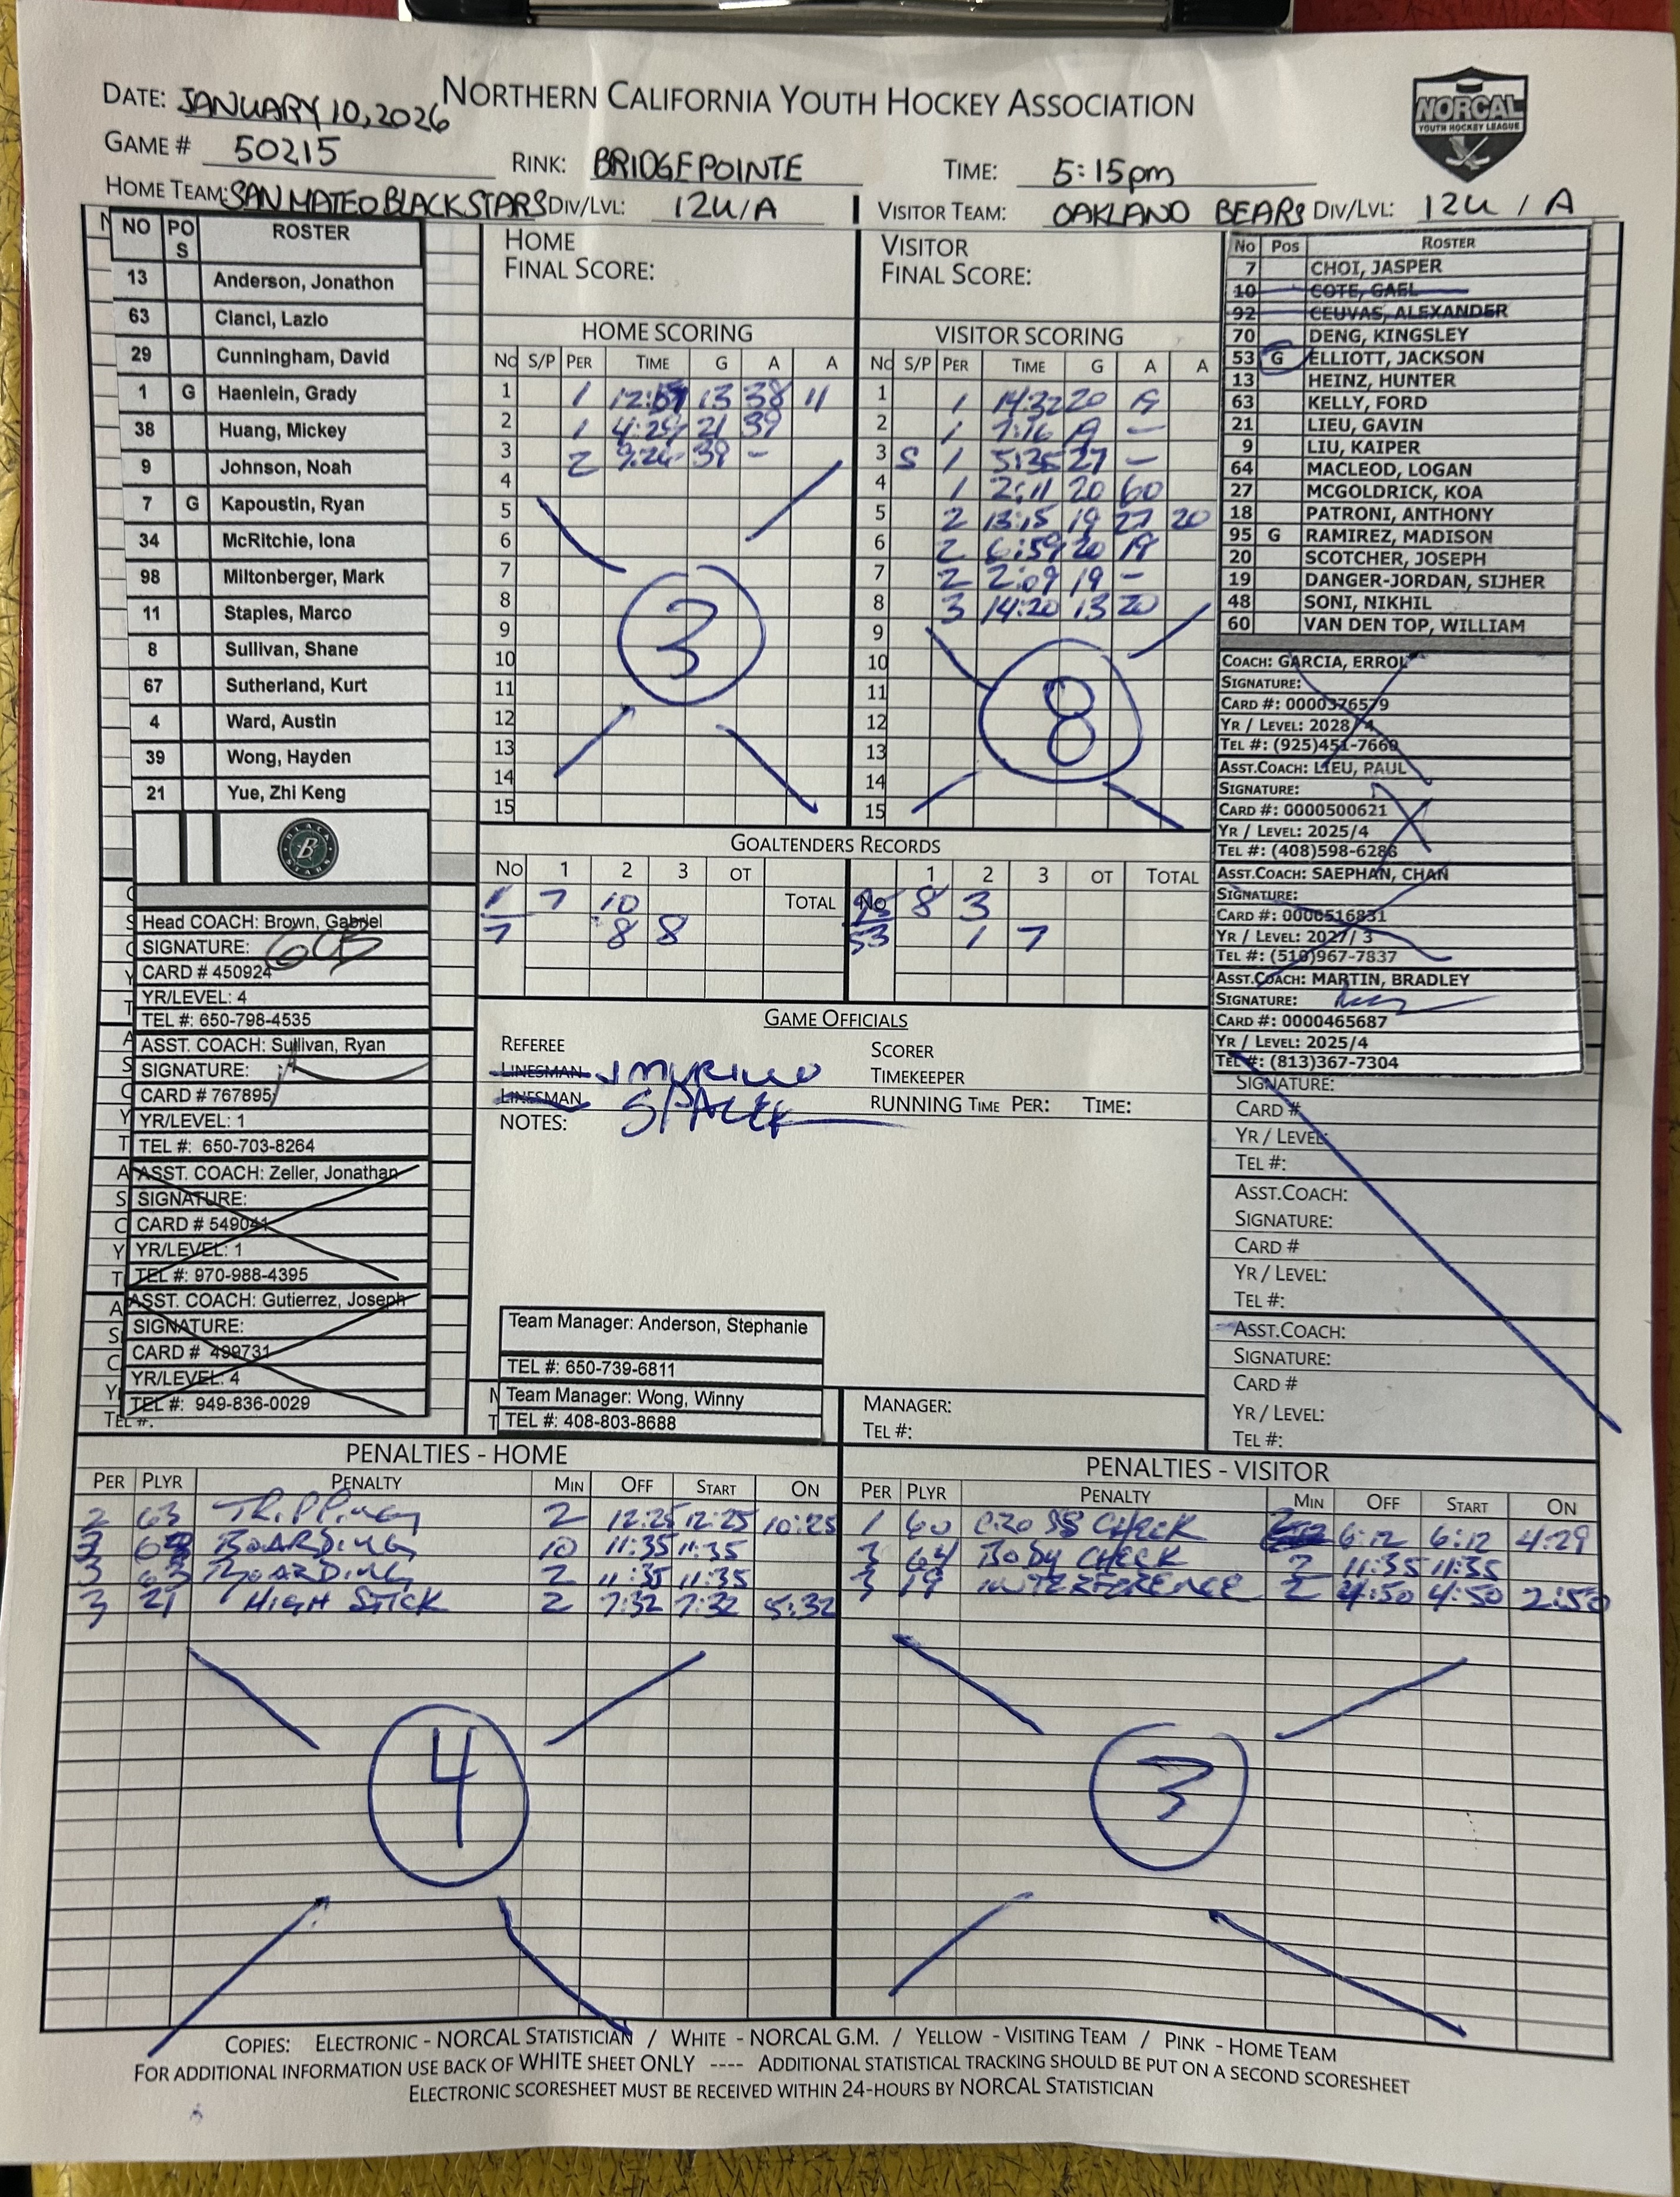 NORTHERN CALIFORNIA YOUTH HOCKEY ASSOCIATION
NORCAL
YOUTH HOCKEY LEAGUE
DATE: JANUARY 10, 2026
GAME # 50215
RINK: BRIDGEPOINTE
TIME: 5:15pm
HOME TEAM: SAN MATEO BLACK STARS DIV/LVL: 12U/A
VISITOR TEAM: OAKLAND BEARS DIV/LVL: 12U / A
NO POS ROSTER
13 Anderson, Jonathon
63 Cianci, Lazlo
29 Cunningham, David
1 G Haenlein, Grady
38 Huang, Mickey
9 Johnson, Noah
7 G Kapoustin, Ryan
34 McRitchie, Iona
98 Miltonberger, Mark
11 Staples, Marco
8 Sullivan, Shane
67 Sutherland, Kurt
4 Ward, Austin
39 Wong, Hayden
21 Yue, Zhi Keng
BLACK STARS
B
Head COACH: Brown, Gabriel
SIGNATURE: GCB
CARD # 450924
YR/LEVEL: 4
TEL #: 650-798-4535
ASST. COACH: Sullivan, Ryan
SIGNATURE:
CARD # 767895
YR/LEVEL: 1
TEL #: 650-703-8264
ASST. COACH: Zeller, Jonathan
SIGNATURE:
CARD # 549041
YR/LEVEL: 1
TEL #: 970-988-4395
ASST. COACH: Gutierrez, Joseph
SIGNATURE:
CARD # 499731
YR/LEVEL: 4
TEL #: 949-836-0029
TEL #:
HOME
FINAL SCORE:
HOME SCORING
No S/P PER TIME G A A
1 1 13 38 11
2 1 4:29 21 39
3 2 9:26 39 -
4
5
6
7
8
9
10
11
12
13
14
15
3
VISITOR
FINAL SCORE:
VISITOR SCORING
No S/P PER TIME G A A
1 1 14:32 20 19
2 1 7:16 19 -
3 S 1 5:35 27 -
4 1 2:11 20 60
5 2 13:15 19 27 20
6 2 6:59 20 19
7 2 2:09 19 -
8 3 14:20 13 20
9
10
11
12
13
14
15
8
GOALTENDERS RECORDS
No 1 2 3 OT TOTAL
1 7 10
7 8 8
No 1 2 3 OT TOTAL
95 8 3
53 1 7
GAME OFFICIALS
REFEREE
LINESMAN J MURILLO
LINESMAN
NOTES:
SCORER
TIMEKEEPER
RUNNING TIME PER: TIME:
Team Manager: Anderson, Stephanie
TEL #: 650-739-6811
Team Manager: Wong, Winny
TEL #: 408-803-8688
MANAGER:
TEL #:
No Pos ROSTER
7 CHOI, JASPER
10 COTE, GAEL
92 CEUVAS, ALEXANDER
70 DENG, KINGSLEY
53 G ELLIOTT, JACKSON
13 HEINZ, HUNTER
63 KELLY, FORD
21 LIEU, GAVIN
9 LIU, KAIPER
64 MACLEOD, LOGAN
27 MCGOLDRICK, KOA
18 PATRONI, ANTHONY
95 G RAMIREZ, MADISON
20 SCOTCHER, JOSEPH
19 DANGER-JORDAN, SIJHER
48 SONI, NIKHIL
60 VAN DEN TOP, WILLIAM
COACH: GARCIA, ERROL
SIGNATURE:
CARD #: 0000376579
YR / LEVEL: 2028/4
TEL #: (925)451-7660
ASST.COACH: LIEU, PAUL
SIGNATURE:
CARD #: 0000500621
YR / LEVEL: 2025/4
TEL #: (408)598-6286
ASST.COACH: SAEPHAN, CHAN
SIGNATURE:
CARD #: 0000516831
YR / LEVEL: 2027/ 3
TEL #: (510)967-7837
ASST.COACH: MARTIN, BRADLEY
SIGNATURE:
CARD #: 0000465687
YR / LEVEL: 2025/4
TEL #: (813)367-7304
SIGNATURE:
CARD #
YR / LEVEL:
TEL #:
ASST.COACH:
SIGNATURE:
CARD #
YR / LEVEL:
TEL #:
ASST.COACH:
SIGNATURE:
CARD #
YR / LEVEL:
TEL #:
PENALTIES - HOME
PER PLYR PENALTY MIN OFF START ON
2 63 TRIPPING 2 12:25 12:25 10:25
3 63 BOARDING 10 11:35 11:35
3 63 BOARDING 2 11:35 11:35
3 21 HIGH STICK 2 7:32 7:32 5:32
4
PENALTIES - VISITOR
PER PLYR PENALTY MIN OFF START ON
1 60 CROSS CHECK 2 6:12 6:12 4:29
3 64 BODY CHECK 2 11:35 11:35
3 19 INTERFERENCE 2 4:50 4:50 2:50
3
COPIES: ELECTRONIC - NORCAL STATISTICIAN / WHITE - NORCAL G.M. / YELLOW - VISITING TEAM / PINK - HOME TEAM
FOR ADDITIONAL INFORMATION USE BACK OF WHITE SHEET ONLY ---- ADDITIONAL STATISTICAL TRACKING SHOULD BE PUT ON A SECOND SCORESHEET
ELECTRONIC SCORESHEET MUST BE RECEIVED WITHIN 24-HOURS BY NORCAL STATISTICIAN